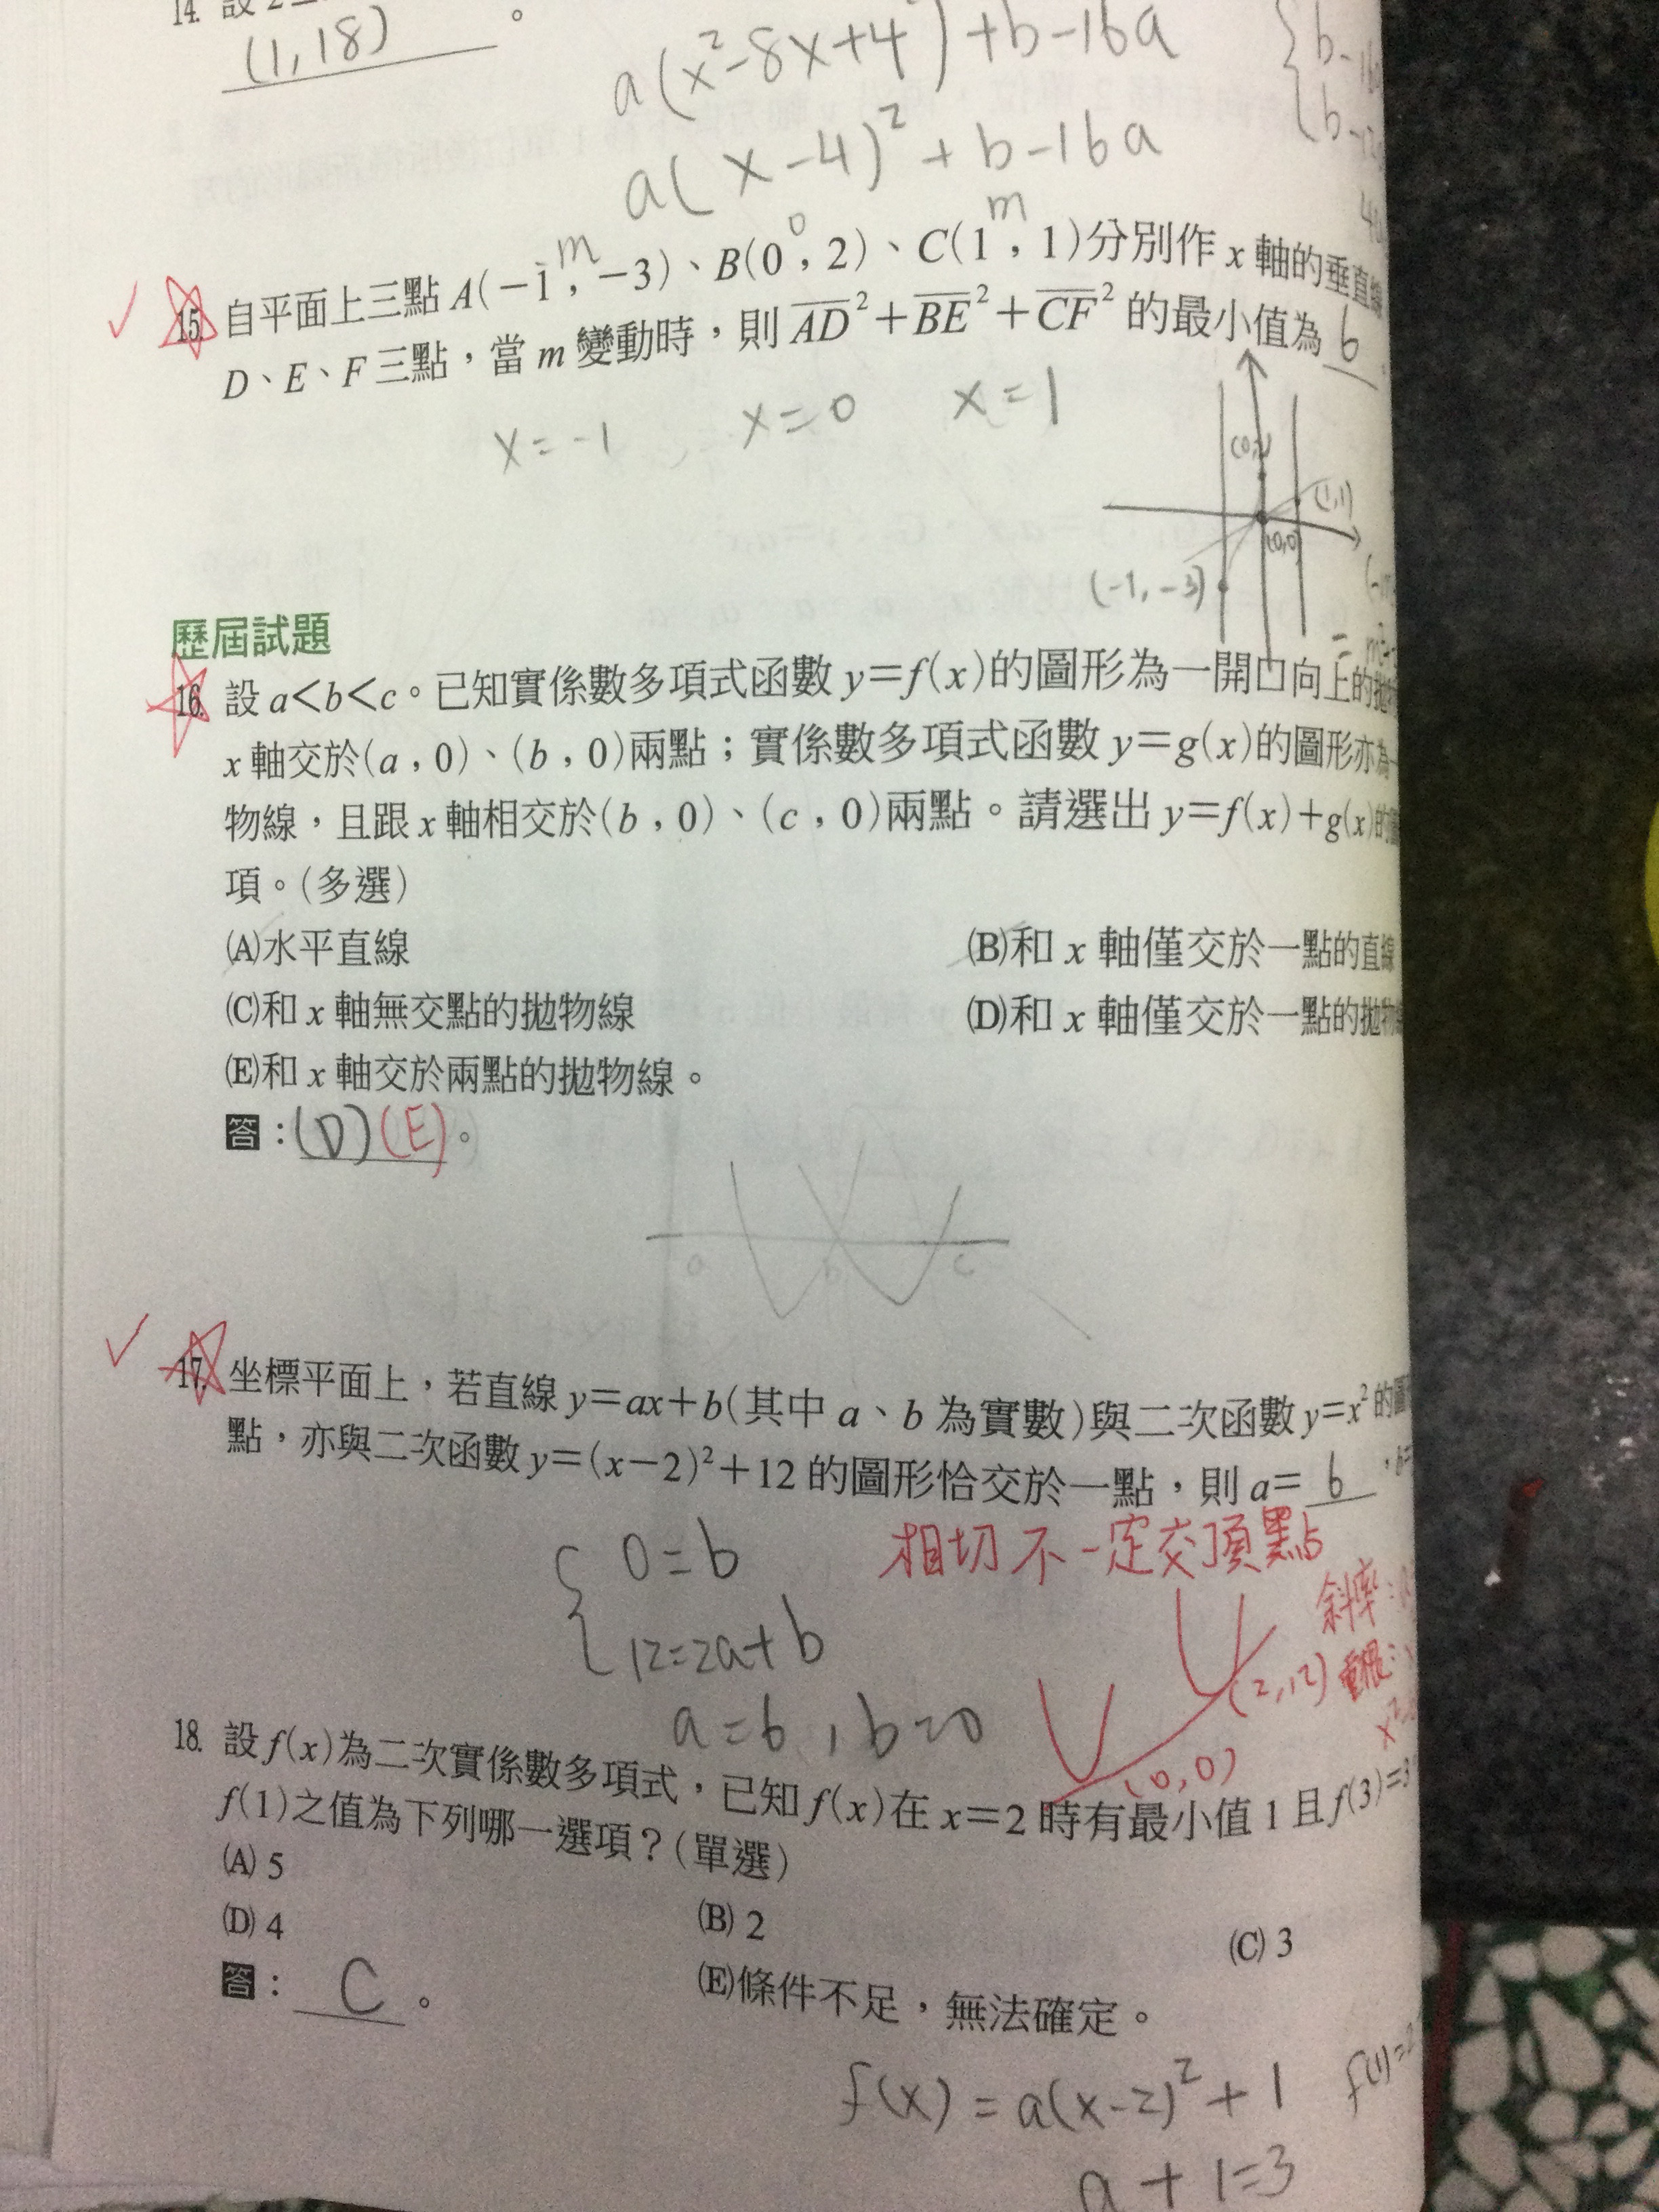 14. 設
(1,18) 。
a(x²-8x+4²)+b-16a
a(x-4)²+b-16a
15. 自平面上三點 A(-1,-3)、B(0,2)、C(1,1)分別作 x 軸的垂直線
m 0 m
D、E、F 三點,當 m 變動時,則 AD²+BE²+CF² 的最小值為 6
x=-1 x=0 x=1
(1,1)
(0,0)
(-1,-3)
歷屆試題
16. 設 a<b<c。已知實係數多項式函數 y=f(x)的圖形為一開口向上的拋物
x 軸交於(a,0)、(b,0)兩點;實係數多項式函數 y=g(x)的圖形亦為一
物線,且跟 x 軸相交於(b,0)、(c,0)兩點。請選出 y=f(x)+g(x)的圖
項。(多選)
(A)水平直線 (B)和 x 軸僅交於一點的直線
(C)和 x 軸無交點的拋物線 (D)和 x 軸僅交於一點的拋物線
(E)和 x 軸交於兩點的拋物線。
答:(D)(E)。
a b c
17. 坐標平面上,若直線 y=ax+b(其中 a、b 為實數)與二次函數 y=x² 的圖
點,亦與二次函數 y=(x-2)²+12 的圖形恰交於一點,則 a= 6 ,b=
0=b
相切不一定交頂點
斜率:
12=2a+b
(2,12) 重根:
a=6,b=0
(0,0)
18. 設 f(x)為二次實係數多項式,已知 f(x)在 x=2 時有最小值 1 且 f(3)=3
f(1)之值為下列哪一選項?(單選)
(A) 5 (B) 2 (C) 3
(D) 4 (E)條件不足,無法確定。
答: C 。
f(x)=a(x-2)²+1
a+1=3